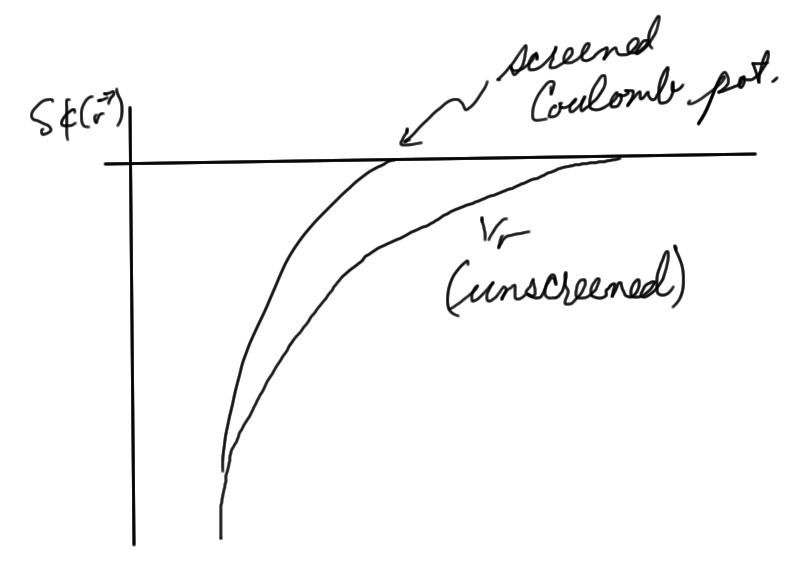 δφ(r⃗)
screened
Coulomb pot.
1/r
(unscreened)